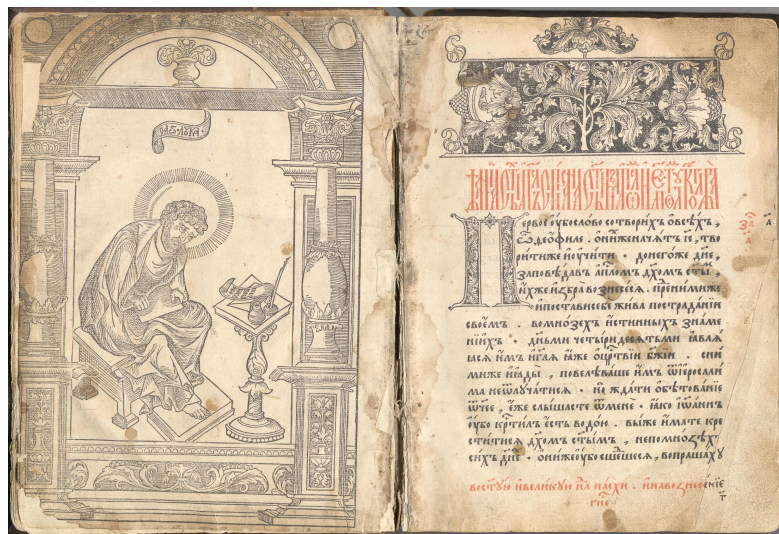 лука
Первое ꙋбо слово сотворихъ ѡ всѣхъ ,
ѽ ѳеѡфиле . ѡ ниже начатъ і҃с , тво
рити же и ꙋчити · до негоже дн҃е ,
заповѣдавъ ап҃лом дх҃ом ст҃ы ,
ихже избра вознесеся . пре нимиже
и постави себе жива по страданїи
своемъ . во мнозехъ истинныхъ зна́ме
нїихъ · дньми четыридесятьми ꙗвлѧ
ꙗсѧ имъ и гл҃ѧ ꙗже о цр҃ствїи бж҃їи . сни
миже и ꙗды , повелѣваше имъ ѿ іерⷭ҇али
ма не ѿлꙋчатисѧ · но ждати обѣтованїе
ѿчее , еже слышасте ѿ мене · ꙗко іѡаннъ
ꙋбо крⷭ҇тилъ есть водою . вы же имате кре
ститисѧ дх҃омъ ст҃ымъ , не по мноѕѣхъ
сихъ дн҃е · ѡни же ꙋбо сшешесѧ , вопрашахꙋ
во ст҃ꙋю и великꙋю нлⷧ҇ѧ пасхи . и на вознесенїе
гн҃е